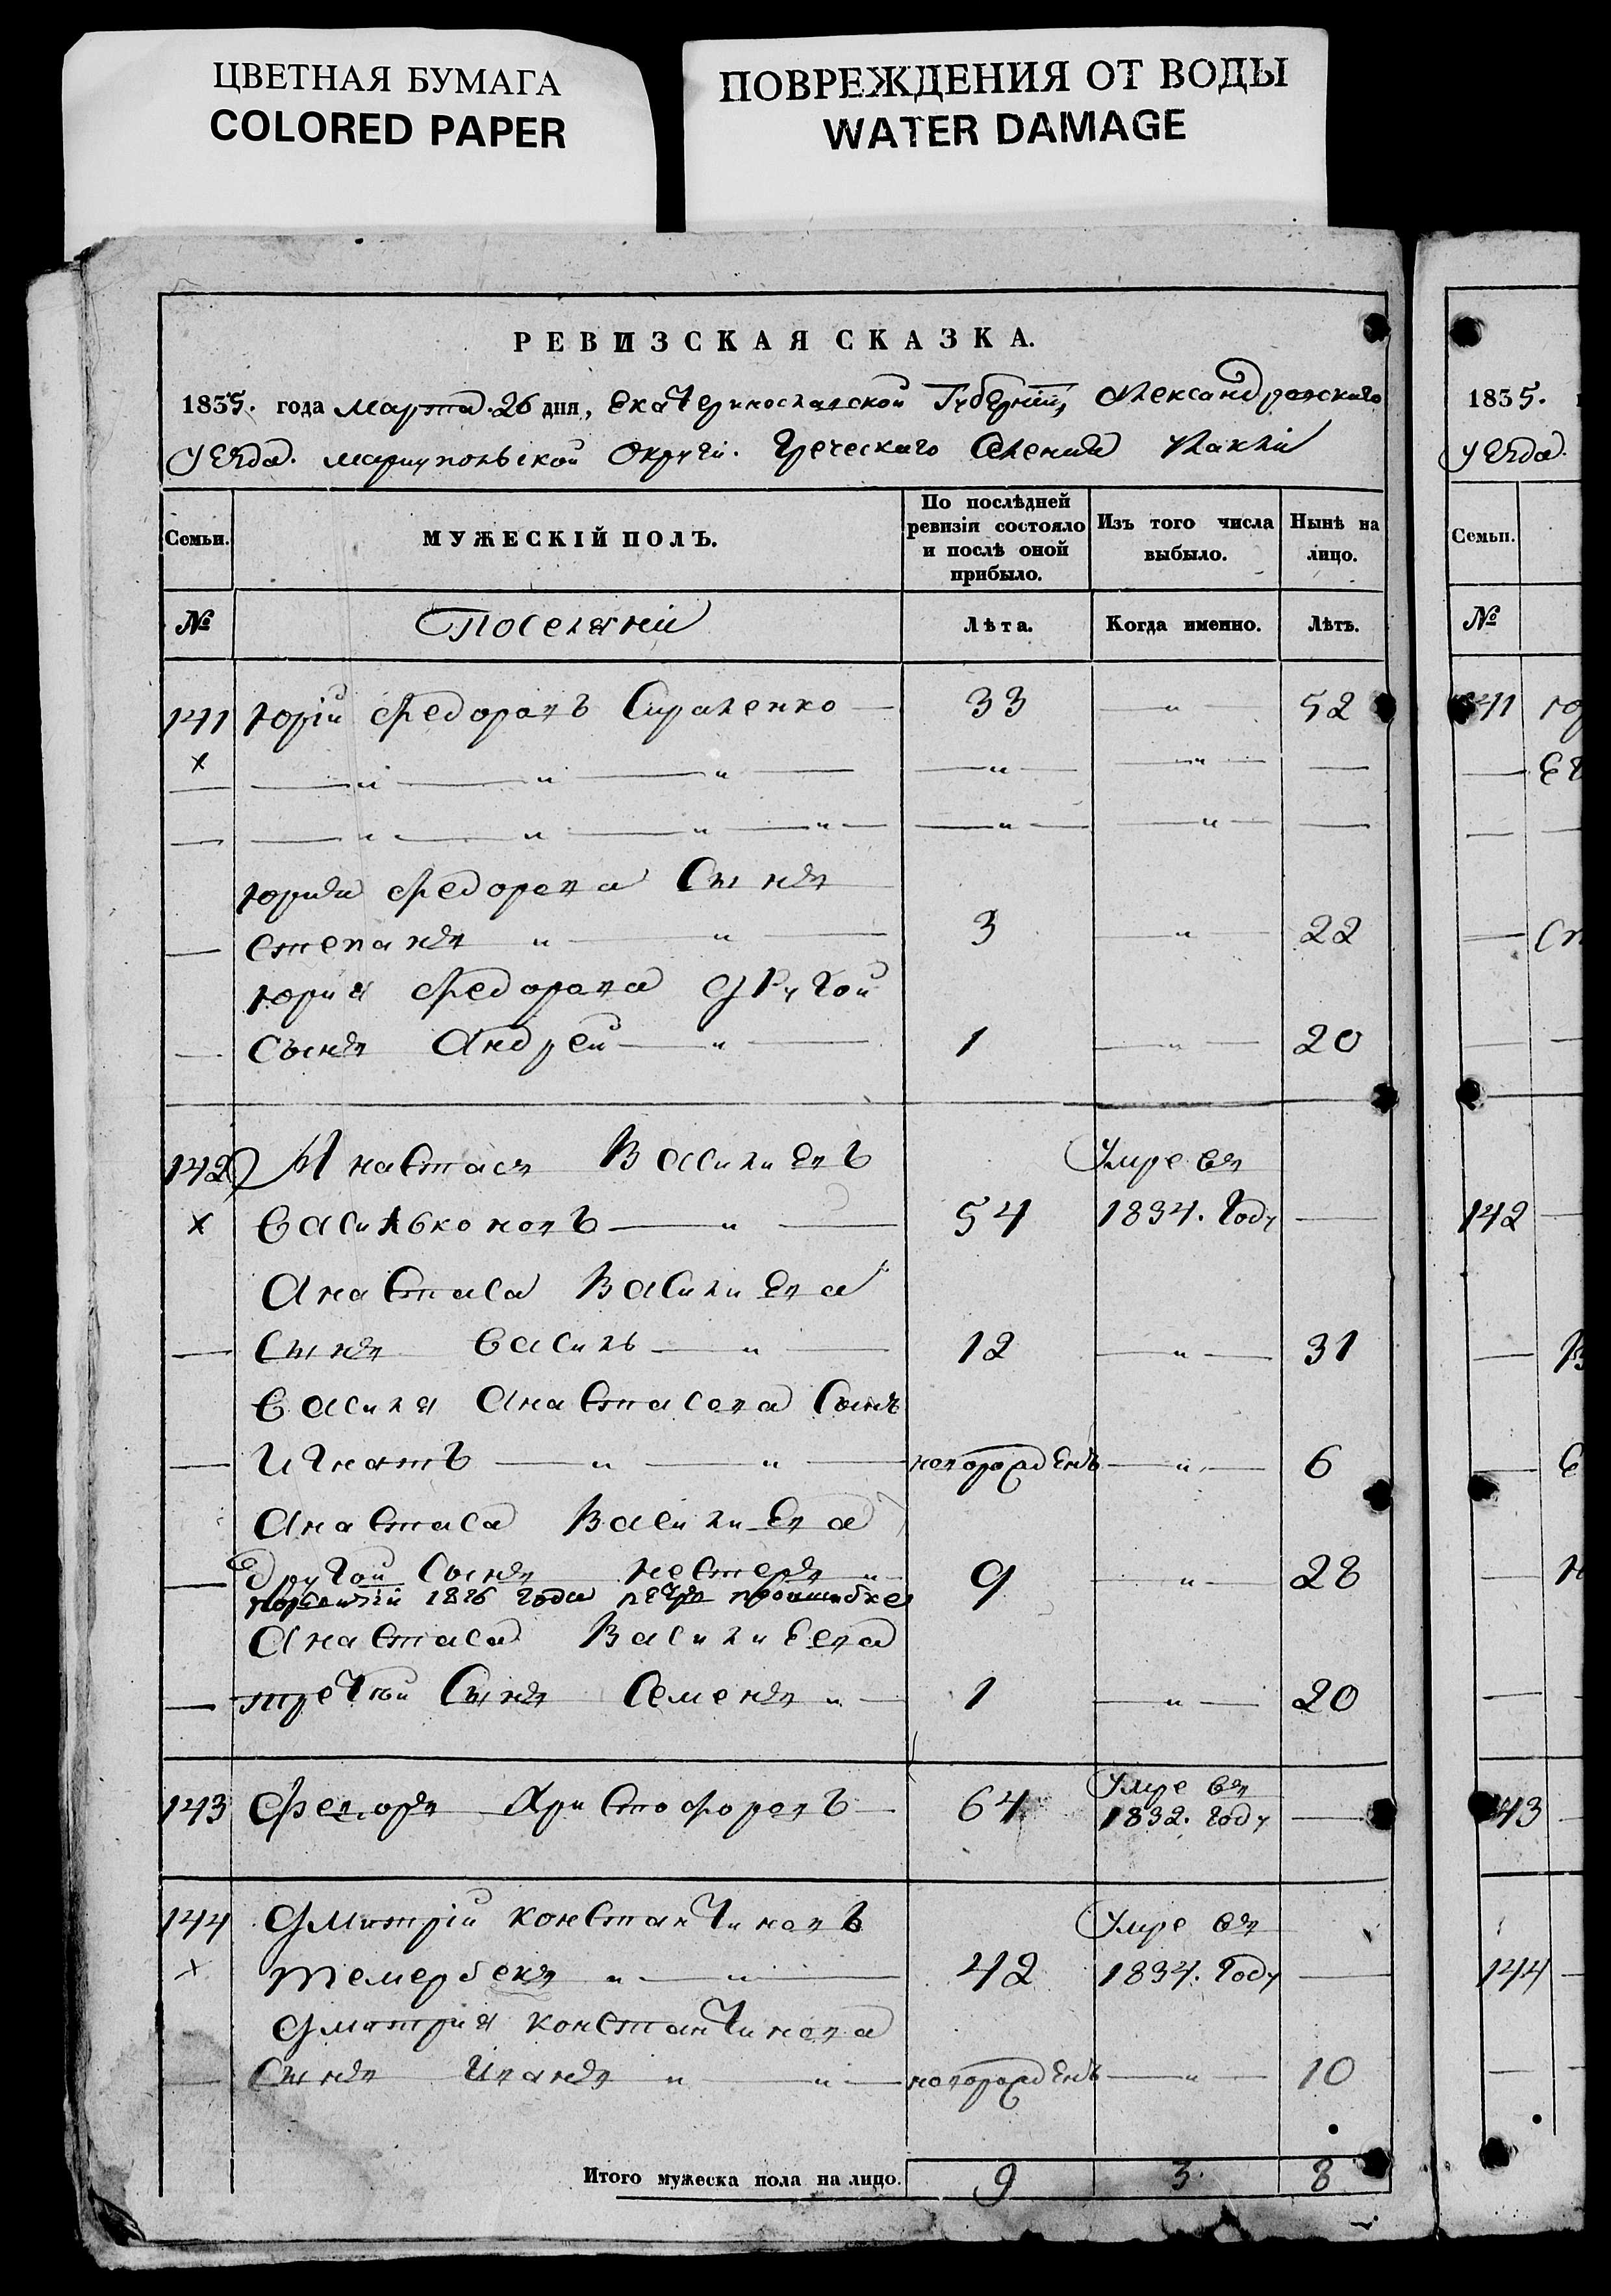 ЦВЕТНАЯ БУМАГА
COLORED PAPER
ПОВРЕЖДЕНИЯ ОТ ВОДЫ
WATER DAMAGE
РЕВИЗСКАЯ СКАЗКА.
1835. года Марта 26 дня, Екатеринославской Губерніи, Александровскаго
Уезда. Мариупольской Округи. Греческаго Селения
Семьи.
МУЖЕСКІЙ ПОЛЪ.
По послѣдней ревизіи состояло и послѣ оной прибыло.
Изъ того числа выбыло.
Нынѣ на лицо.
№
Поселяне
Лѣта.
Когда именно.
Лѣтъ.
141 Юрій Федоровъ 33 — " 52
х — " — " — " — — " — — " — —
— — " — " — " — " — — " — — " — —
Юрия Федорова Сынъ
— Степанъ " — " — 3 — " — 22
Юрия Федорова другой
— Сынъ Андрей — " — 1 — " — 20
142 Анастасъ Васильевъ Умре въ
х Васильконовъ — " — 54 1834. году —
Анастаса Васильева
— Сынъ Василь — " — 12 — " — 31
Василя Анастасова Сынъ
— Игнатъ — " — " — новорожденъ — " — 6
Анастаса Васильева
— другой Сынъ Нестеръ " 9 — " — 28
1816 года
Анастаса Васильева
— третий Сынъ Семенъ " — 1 — " — 20
143 Федоръ Христофоровъ — 64 Умре въ 1832. году —
144 Дмитрій Константиновъ Умре въ
х Темербекъ " — " — 42 1834. году —
Дмитрия Константинова
— Сынъ Иванъ " — " — новорожденъ — " — 10
Итого мужеска пола на лицо. 9 3. 8
1835.
Уезда.
Семьи.
№
142
144